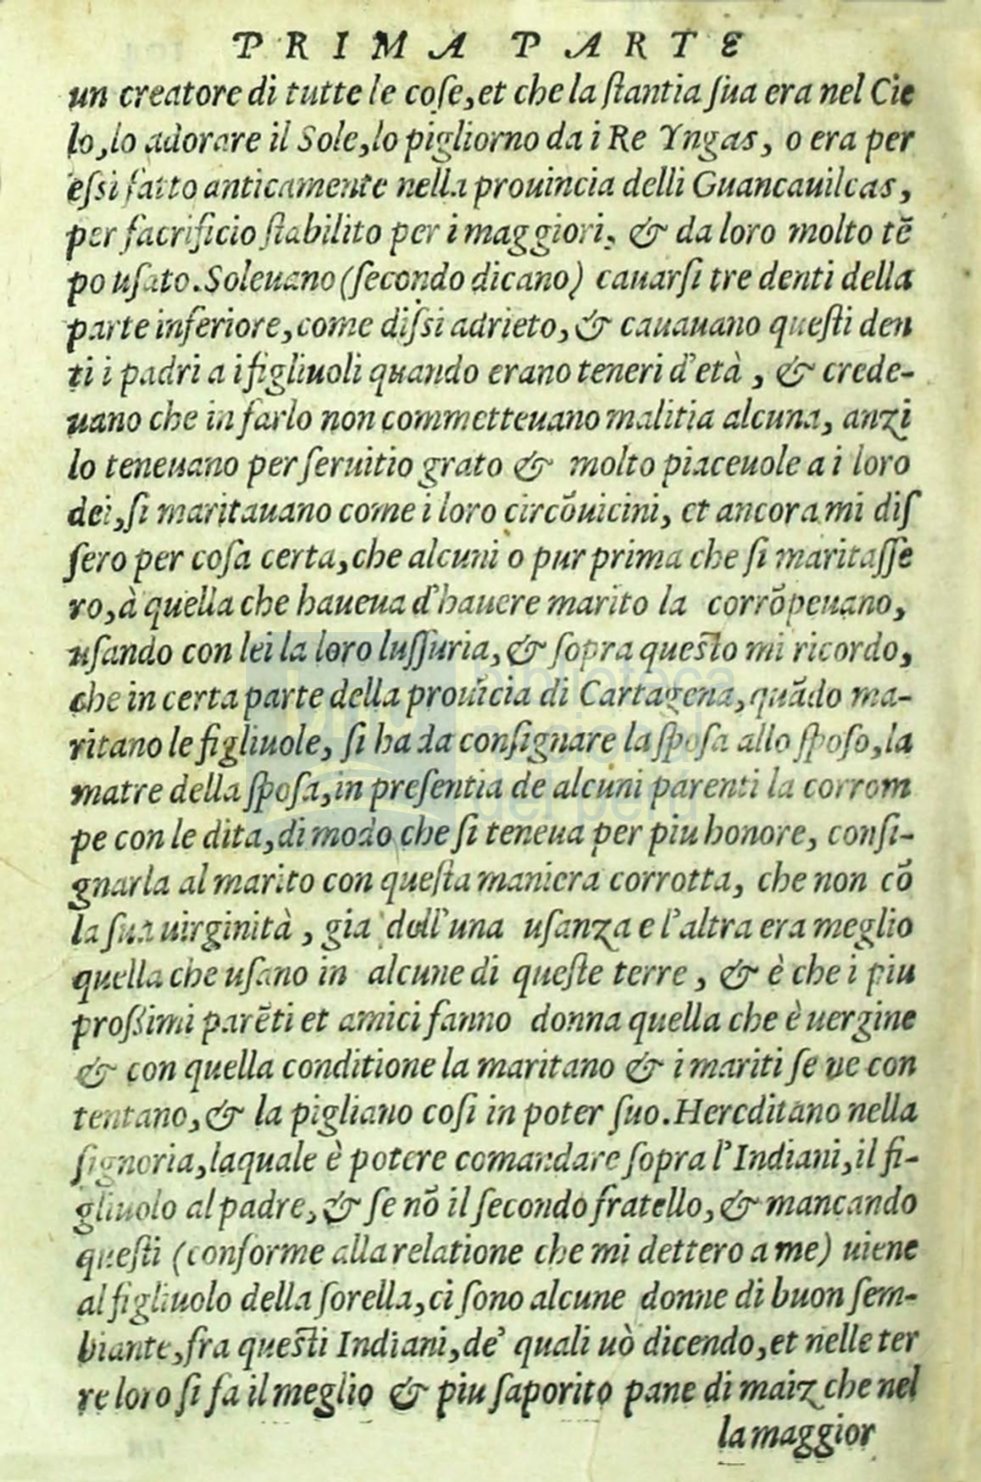 PRIMA PARTE
un creatore di tutte le coſe, et che la ſtantia ſua era nel Cie
lo, lo adorare il Sole, lo pigliorno da i Re Yngas, o era per
eſsi fatto anticamente nella prouincia delli Guancauilcas,
per ſacrificio ſtabilito per i maggiori, & da loro molto tẽ
po uſato. Soleuano (ſecondo dicano) cauarſi tre denti della
parte inferiore, come diſsi adrieto, & cauauano queſti den
ti i padri a i figliuoli quando erano teneri d'età, & crede-
uano che in farlo non commetteuano malitia alcuna, anzi
lo teneuano per ſeruitio grato & molto piaceuole a i loro
dei, ſi maritauano come i loro circõuicini, et ancora mi diſ
ſero per coſa certa, che alcuni o pur prima che ſi maritaſſe
ro, à quella che haueua d'hauere marito la corrõpeuano,
uſando con lei la loro luſſuria, & ſopra queſto mi ricordo,
che in certa parte della prouĩcia di Cartagena, quãdo ma-
ritano le figliuole, ſi ha da conſignare la ſpoſa allo ſpoſo, la
matre della ſpoſa, in preſentia de alcuni parenti la corrom
pe con le dita, di modo che ſi teneua per piu honore, conſi-
gnarla al marito con queſta maniera corrotta, che non cõ
la ſua uirginità, gia dell'una uſanza e l'altra era meglio
quella che uſano in alcune di queſte terre, & è che i piu
proßimi parẽti et amici fanno donna quella che è uergine
& con quella conditione la maritano & i mariti ſe ne con
tentano, & la pigliano coſi in poter ſuo. Hereditano nella
ſignoria, laquale è potere comandare ſopra l'Indiani, il fi-
gliuolo al padre, & ſe nõ il ſecondo fratello, & mancando
queſti (conforme alla relatione che mi dettero a me) uiene
al figliuolo della ſorella, ci ſono alcune donne di buon ſem-
biante, fra queſti Indiani, de' quali uò dicendo, et nelle ter
re loro ſi fa il meglio & piu ſaporito pane di maiz che nel
la maggior